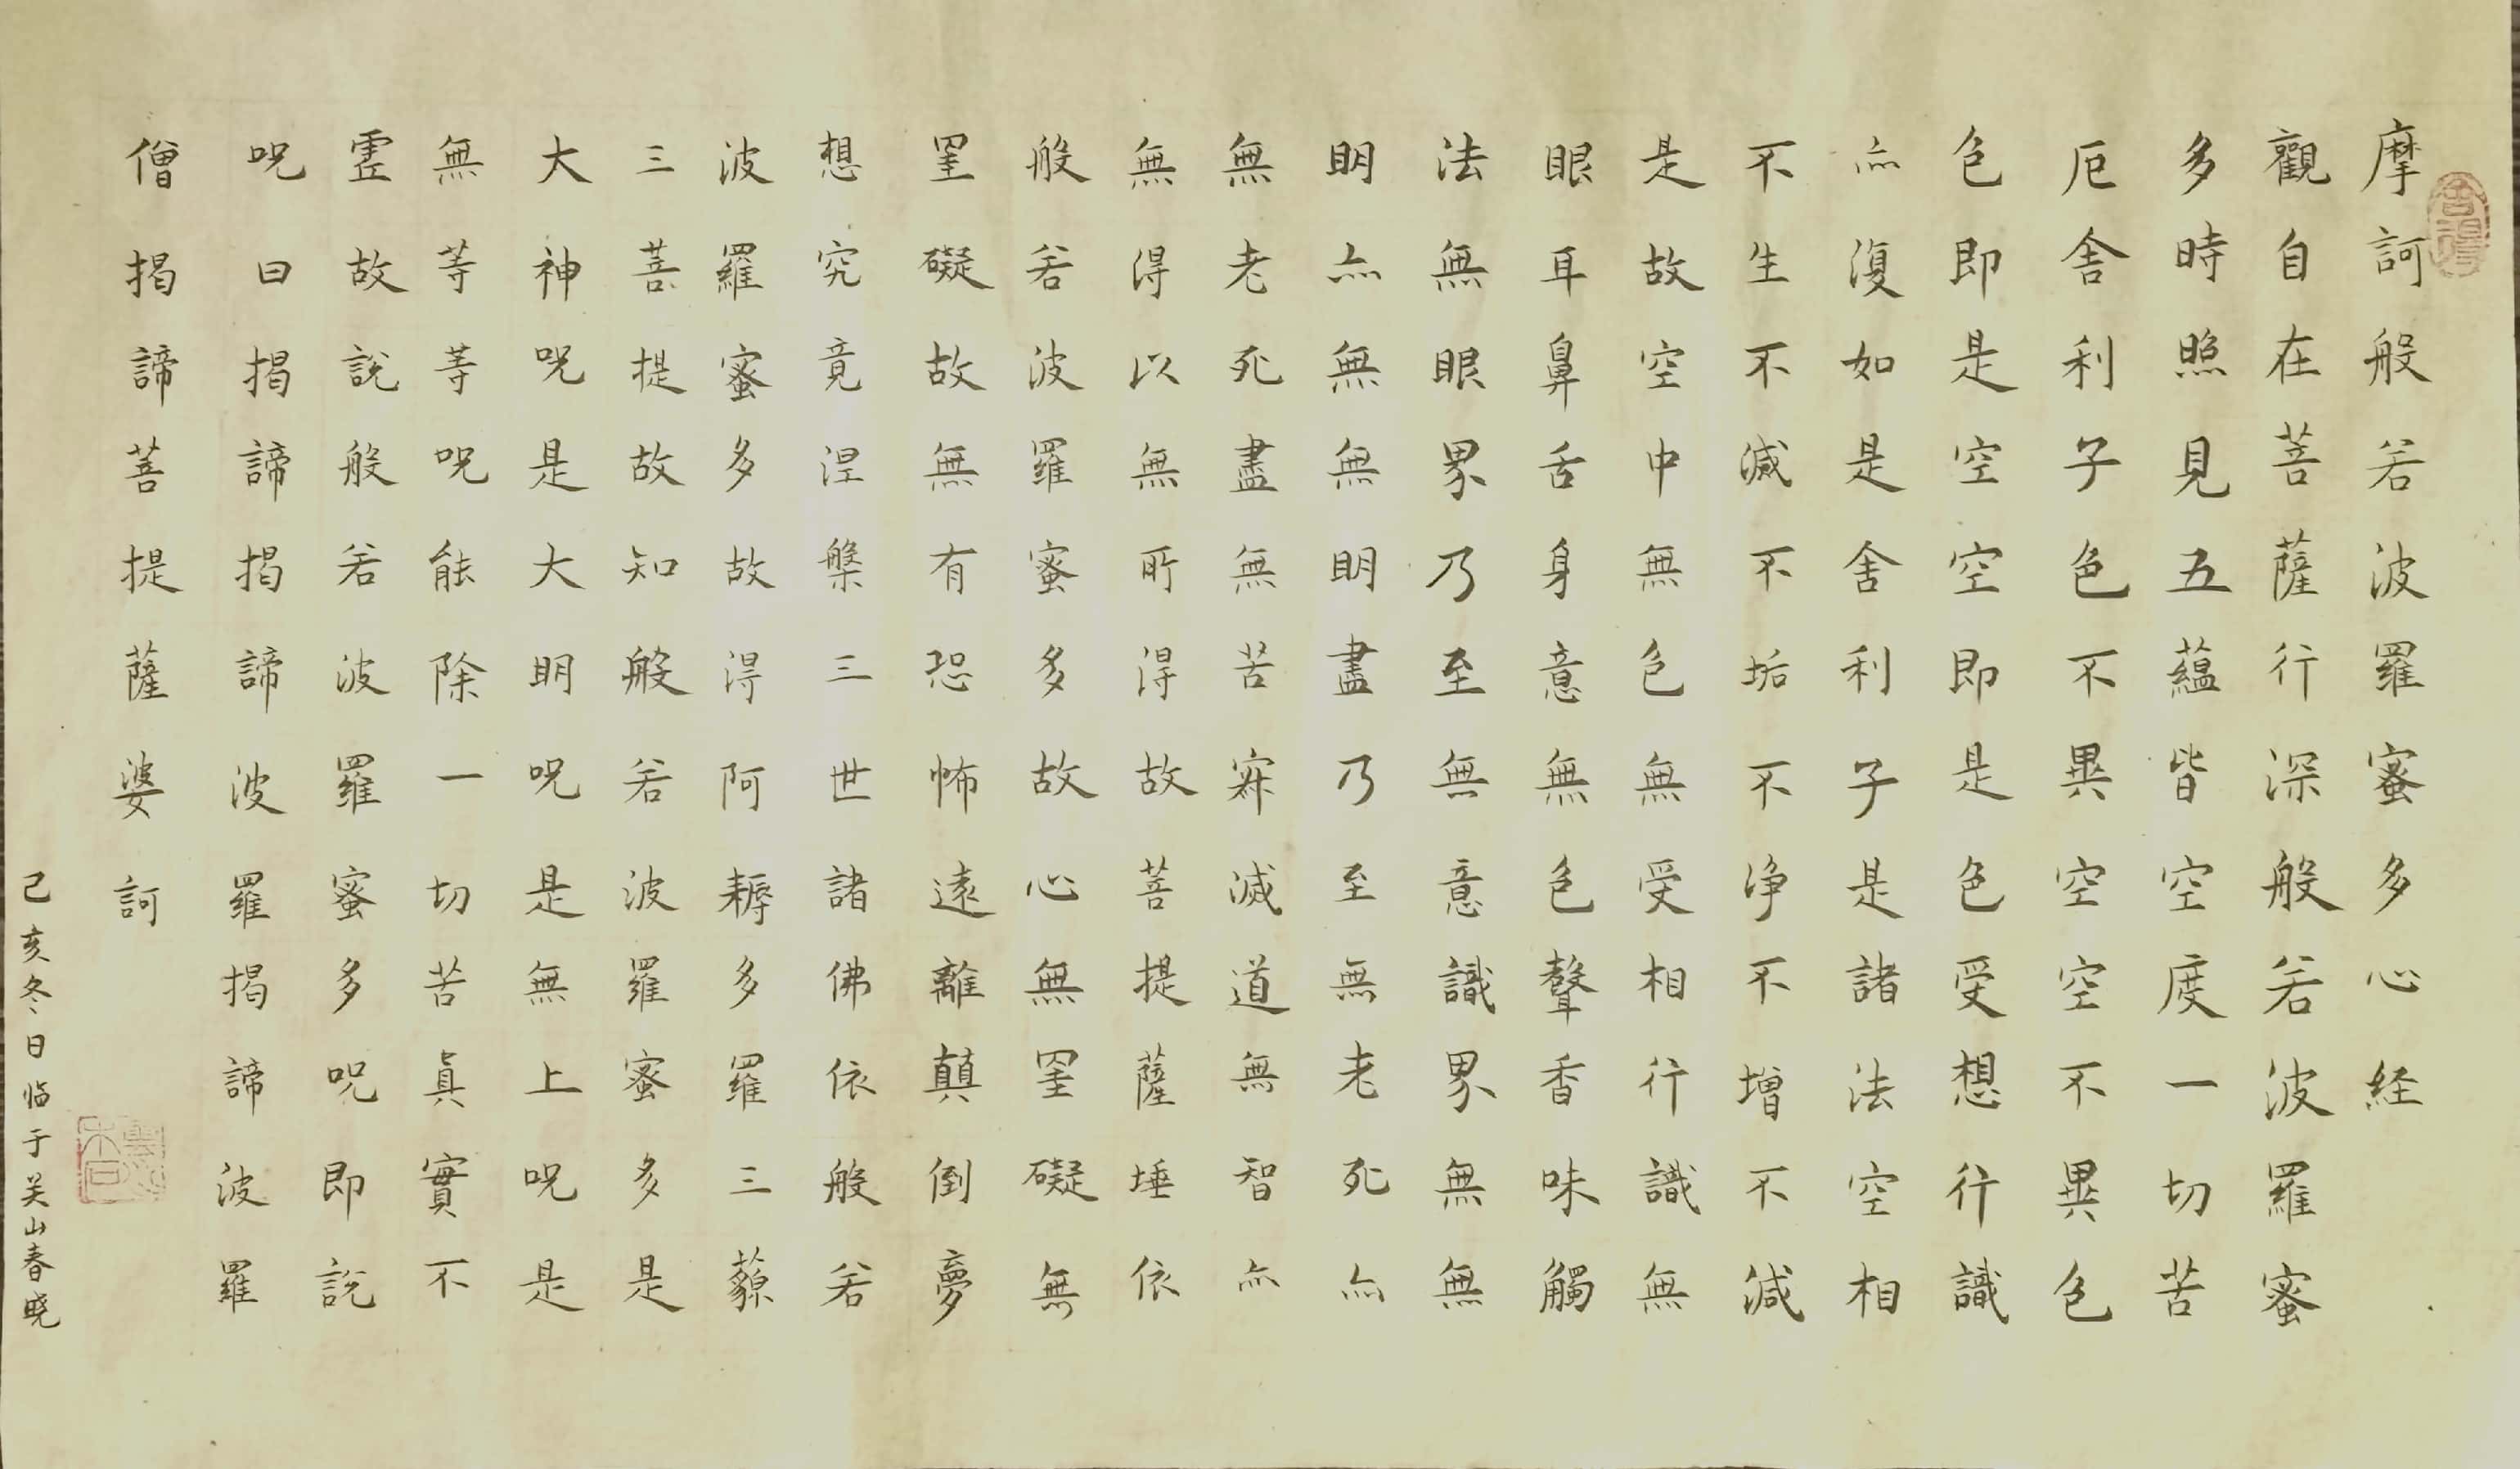 舍得
摩訶般若波羅蜜多心経
觀自在菩薩行深般若波羅蜜
多時照見五蘊皆空度一切苦
厄舍利子色不異空空不異色
色即是空空即是色受想行識
亦復如是舍利子是諸法空相
不生不滅不垢不净不增不減
是故空中無色無受相行識無
眼耳鼻舌身意無色聲香味觸
法無眼界乃至無意識界無無
明亦無無明盡乃至無老死亦
無老死盡無苦寂滅道無智亦
無得以無所得故菩提薩埵依
般若波羅蜜多故心無罣礙無
罣礙故無有恐怖遠離顛倒夢
想究竟涅槃三世諸佛依般若
波羅蜜多故得阿耨多羅三藐
三菩提故知般若波羅蜜多是
大神呪是大明呪是無上呪是
無等等呪能除一切苦真實不
虛故說般若波羅蜜多呪即說
呪曰揭諦揭諦波羅揭諦波羅
僧揭諦菩提薩婆訶
己亥冬日临于关山春晓